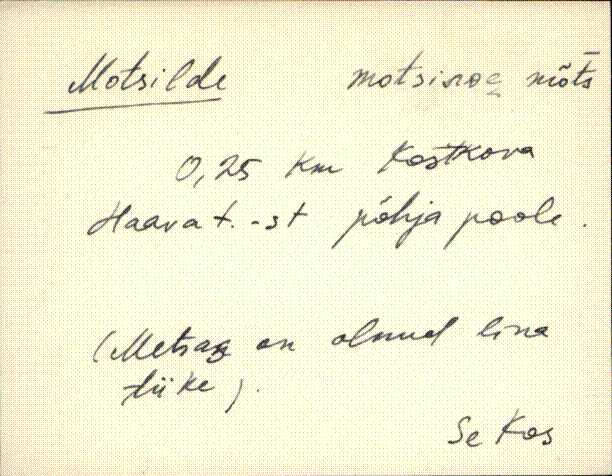 Motsilde motsiroe mõts
0,25 km Kostkova
Haava t.-st põhja poole.
(Metsas on olnud lina
tiike).
Se Kos